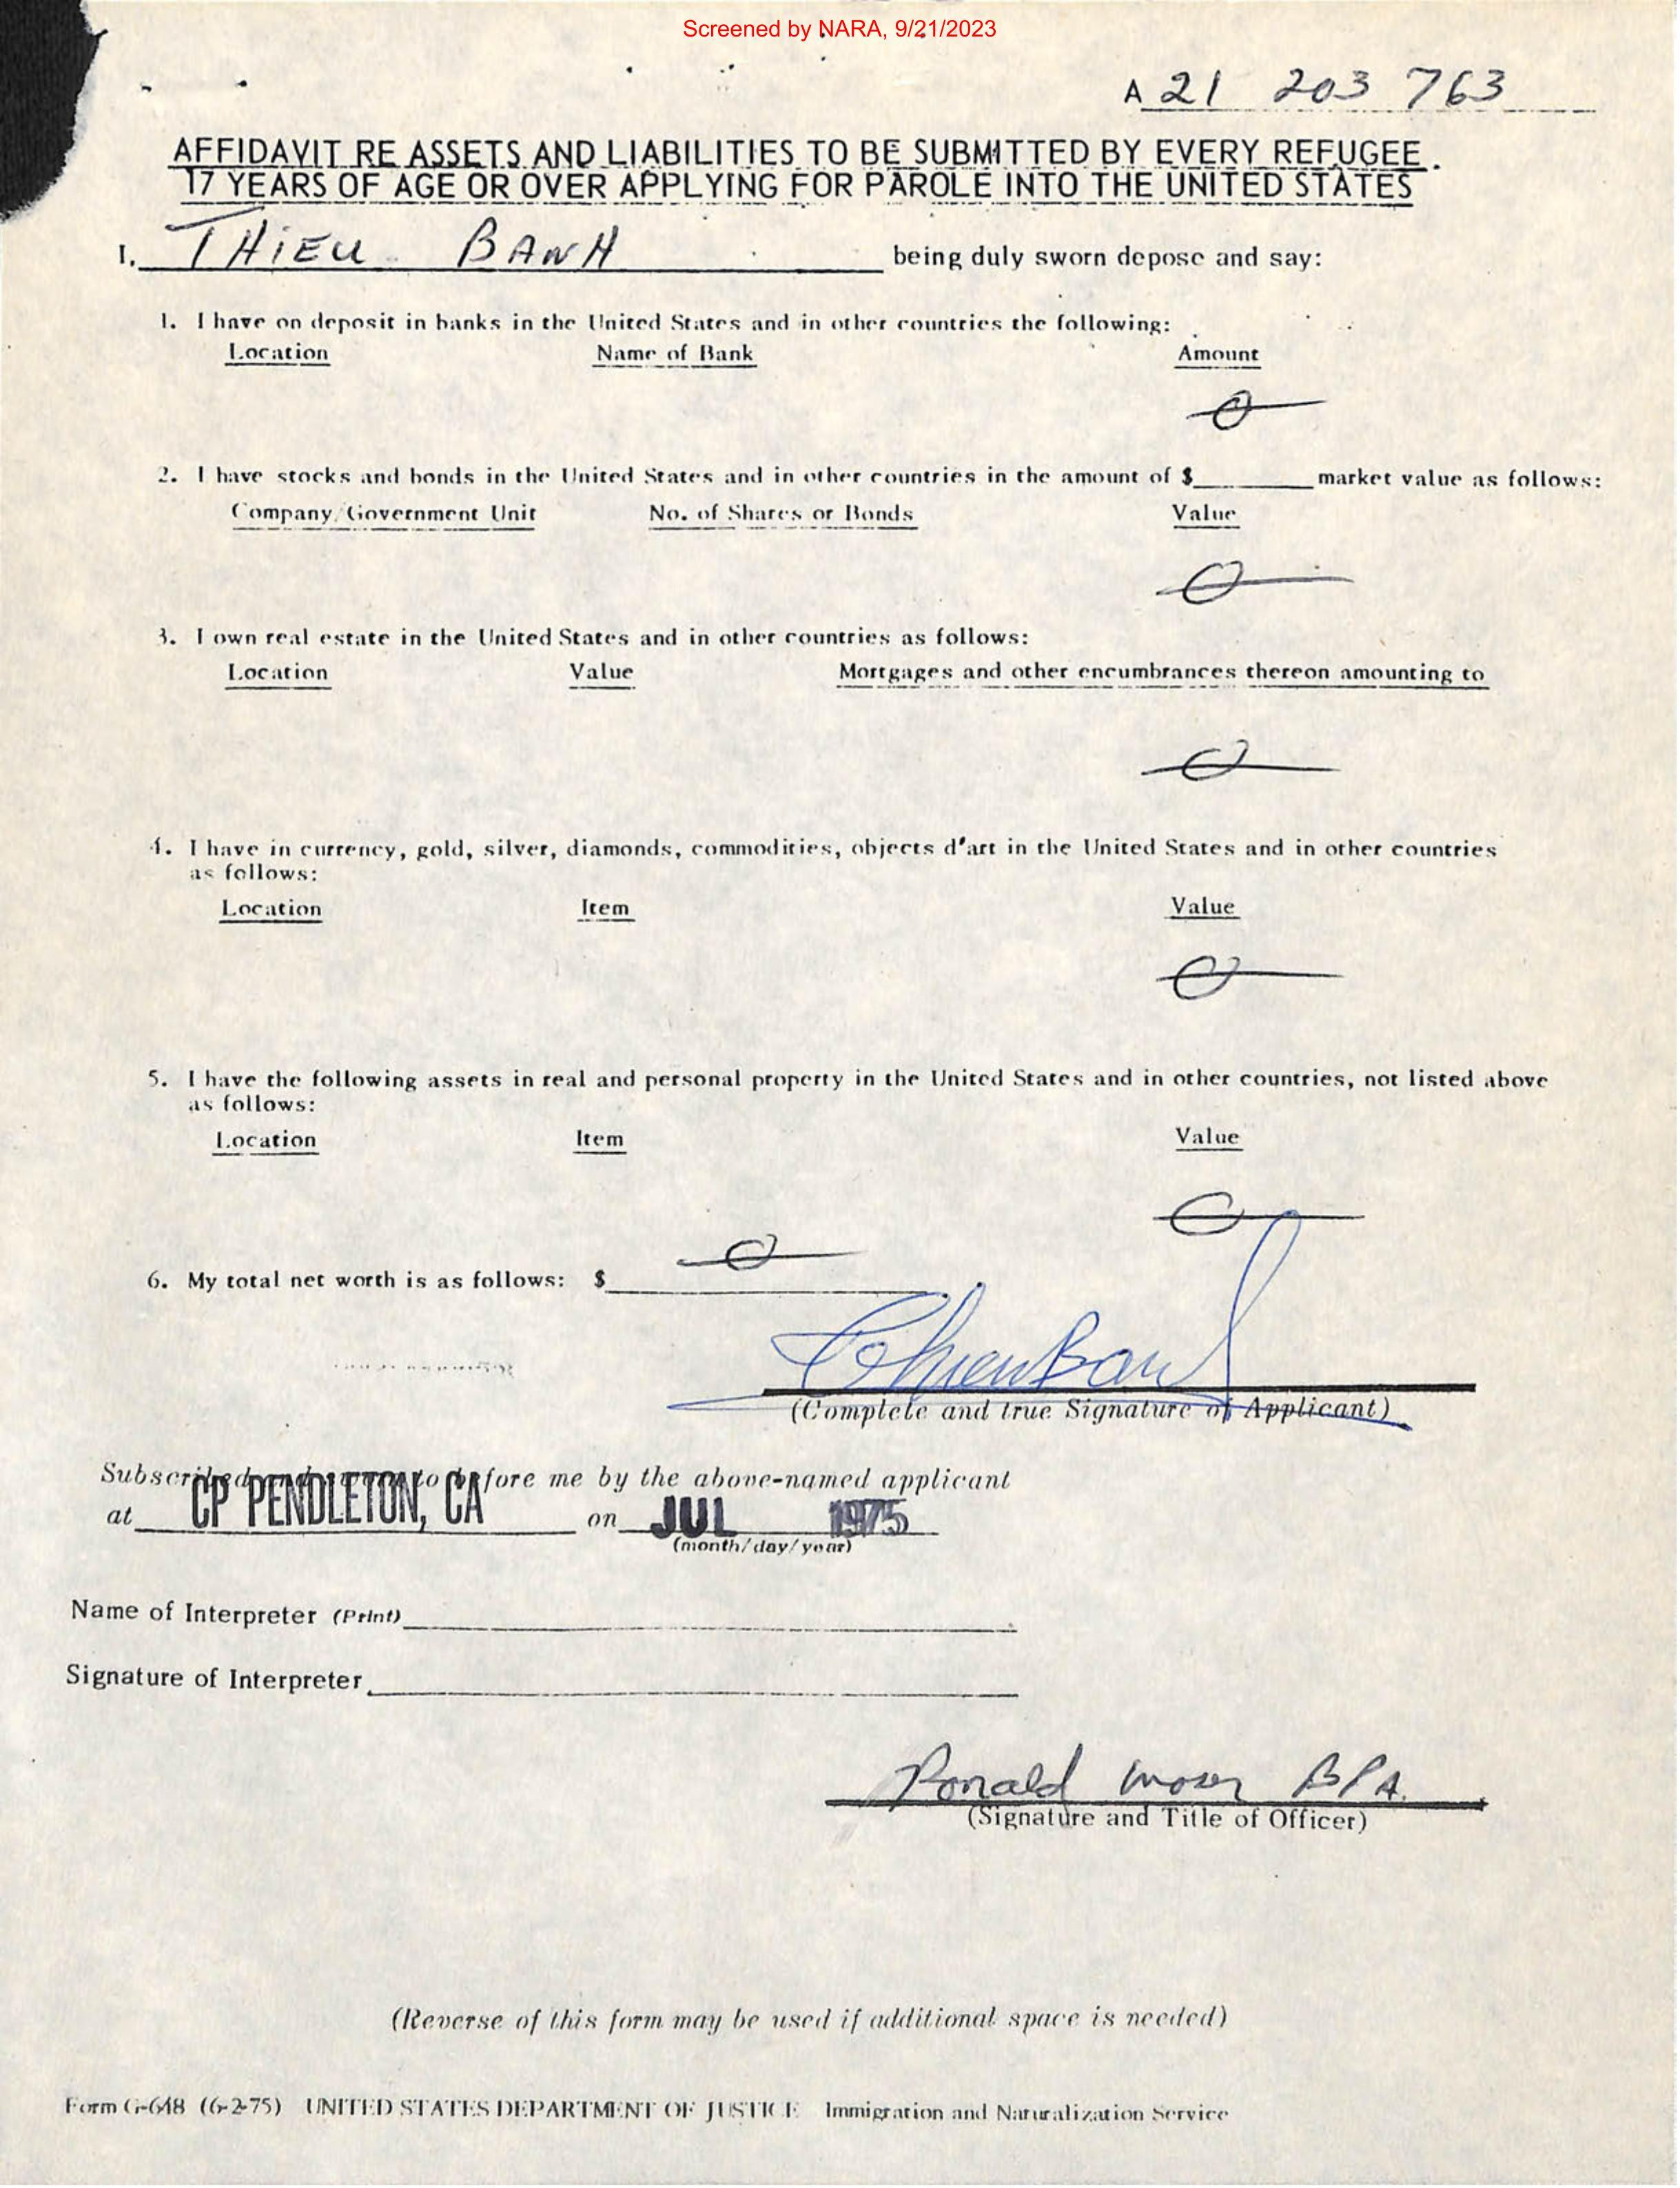 Screened by NARA, 9/21/2023
A 21 203 763
AFFIDAVIT RE ASSETS AND LIABILITIES TO BE SUBMITTED BY EVERY REFUGEE
17 YEARS OF AGE OR OVER APPLYING FOR PAROLE INTO THE UNITED STATES
I, THIEU BANH being duly sworn depose and say:
1. I have on deposit in banks in the United States and in other countries the following:
Location Name of Bank Amount
0
2. I have stocks and bonds in the United States and in other countries in the amount of $ market value as follows:
Company/Government Unit No. of Shares or Bonds Value
0
3. I own real estate in the United States and in other countries as follows:
Location Value Mortgages and other encumbrances thereon amounting to
0
4. I have in currency, gold, silver, diamonds, commodities, objects d'art in the United States and in other countries
as follows:
Location Item Value
0
5. I have the following assets in real and personal property in the United States and in other countries, not listed above
as follows:
Location Item Value
0
6. My total net worth is as follows: $ 0
(Complete and true Signature of Applicant)
Subscribed and sworn to before me by the above-named applicant
at CP PENDLETON, CA on JUL 1975
(month/day/year)
Name of Interpreter (Print)
Signature of Interpreter
Ronald Moser BPA.
(Signature and Title of Officer)
(Reverse of this form may be used if additional space is needed)
Form G-648 (6-2-75) UNITED STATES DEPARTMENT OF JUSTICE Immigration and Naturalization Service